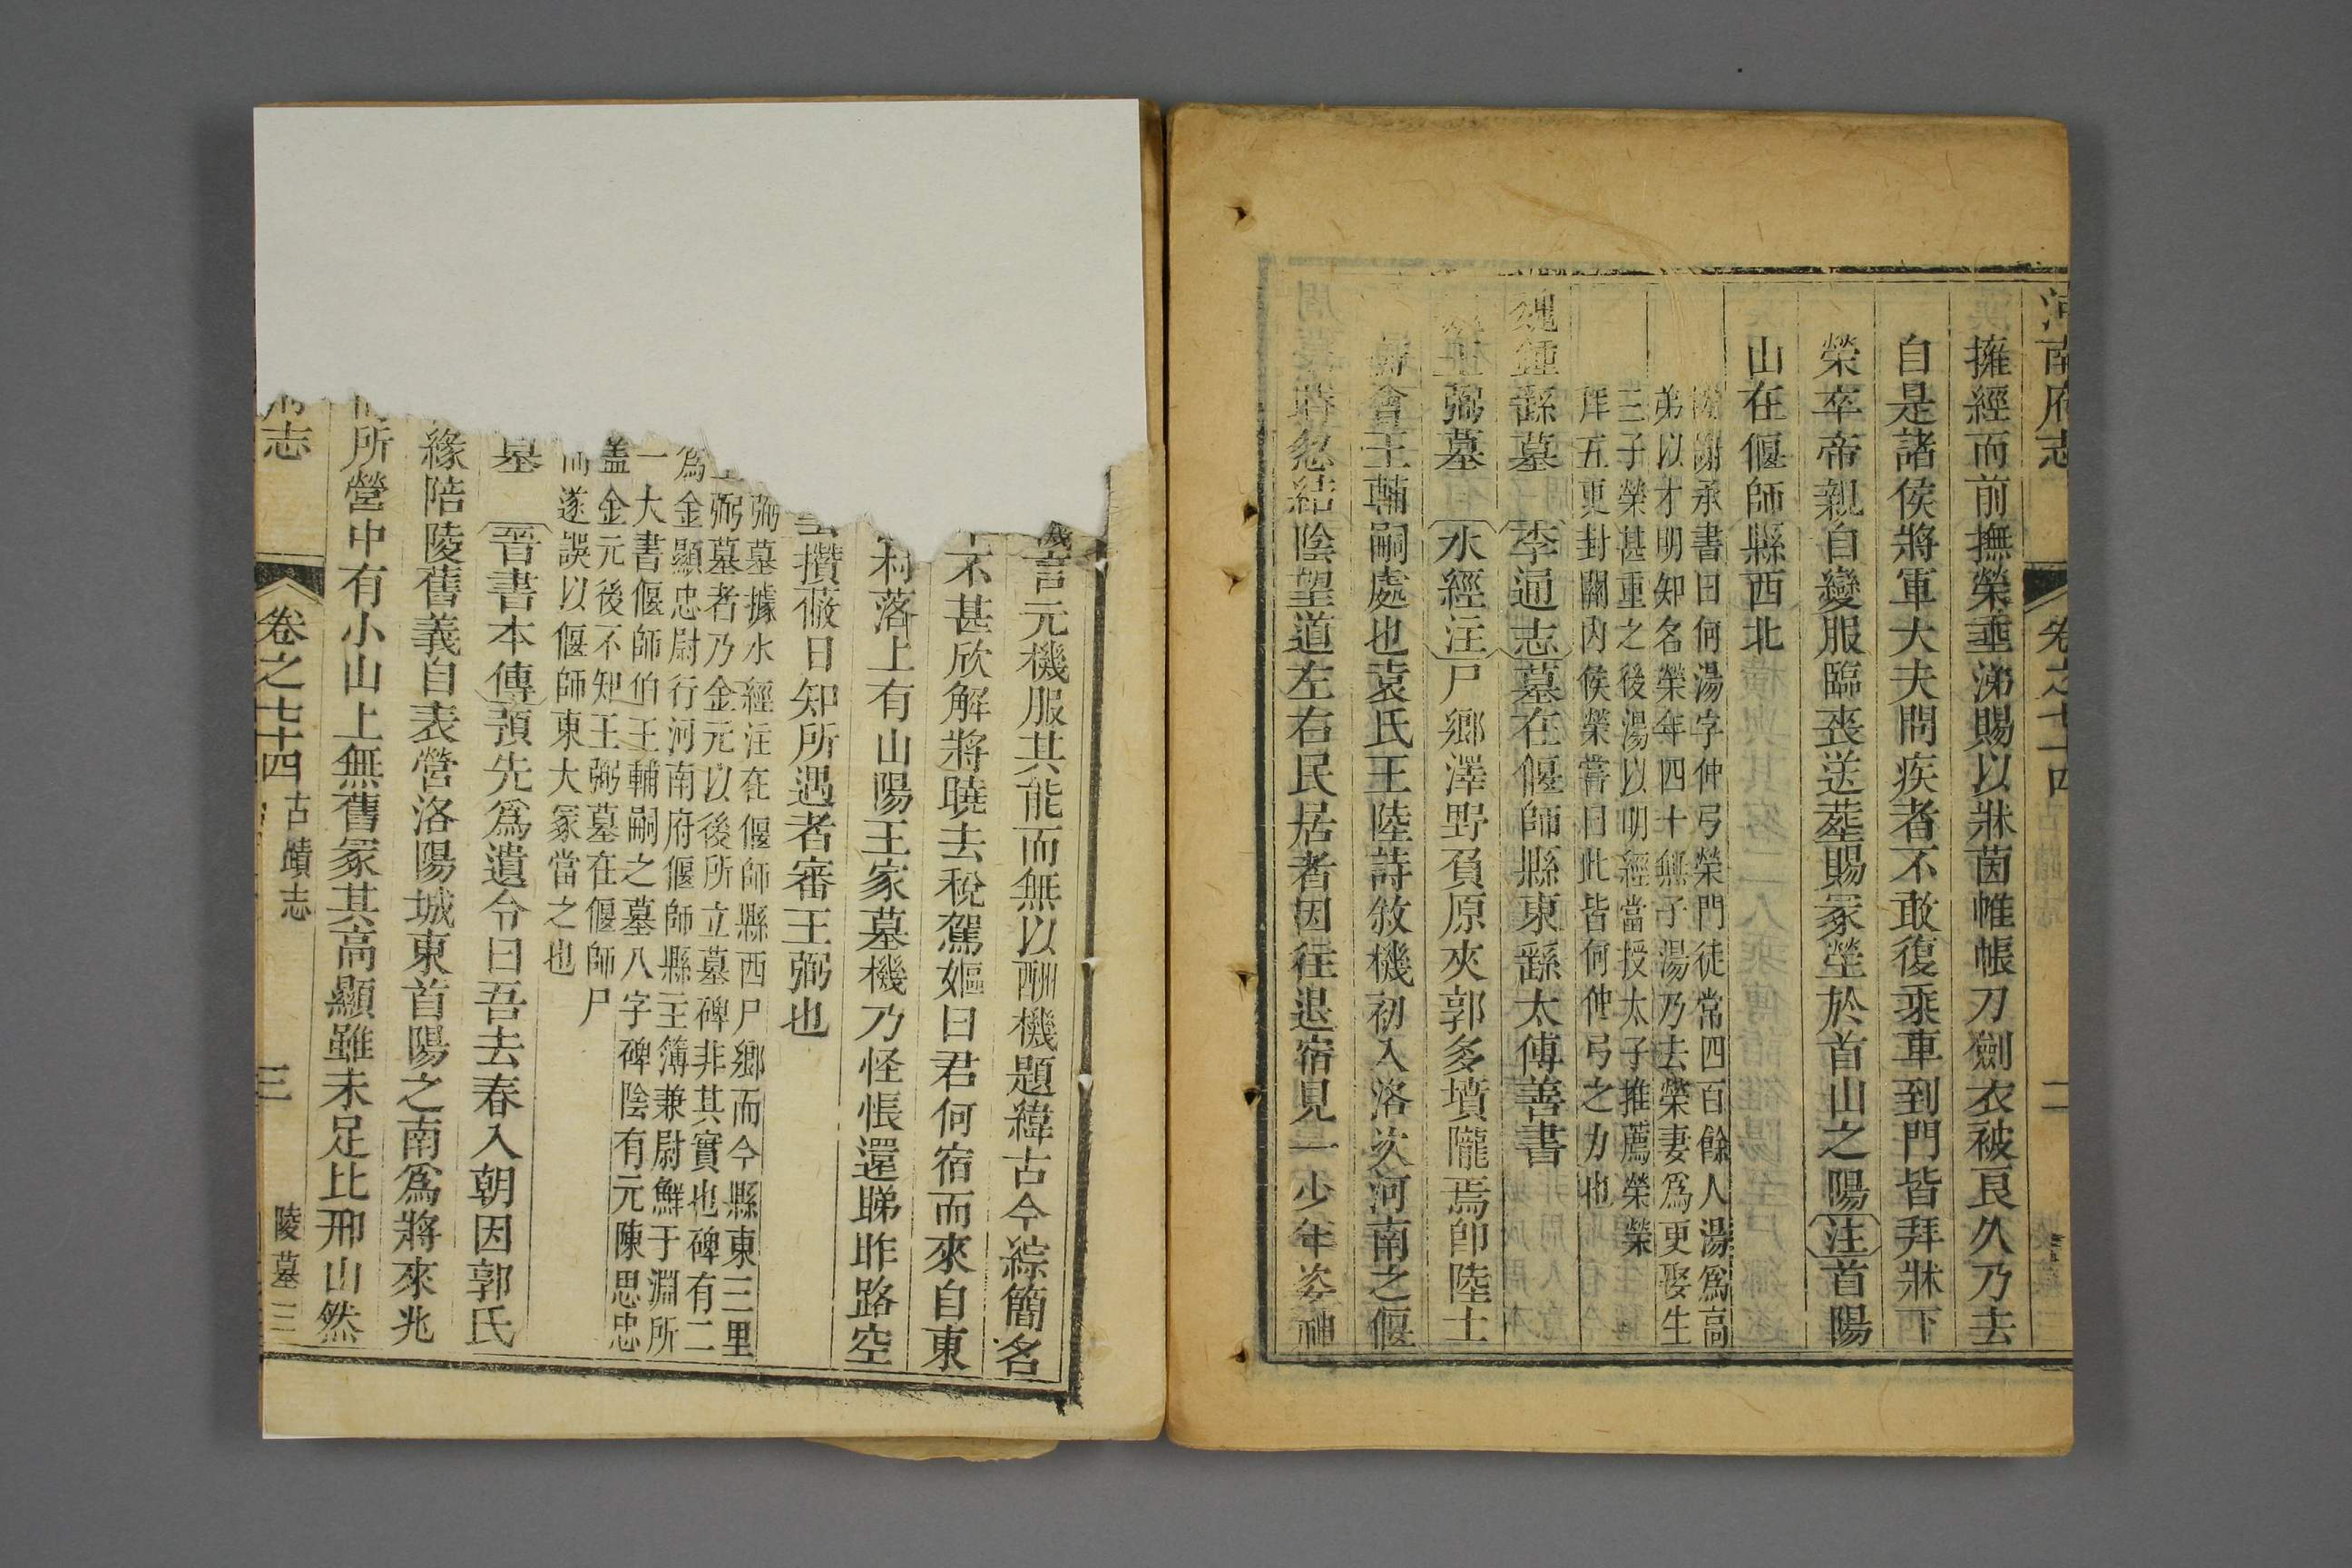 河南府志 卷之七十四 古蹟志 二
擁經而前撫榮垂涕賜以牀茵帷帳刀劍衣被良久乃去
自是諸侯將軍大夫問疾者不敢復乘車到門皆拜牀下
榮卒帝親自變服臨喪送葬賜冢塋於首山之陽注首陽
山在偃師縣西北
謝承書曰何湯字仲弓榮門徒常四百餘人湯爲高
弟以才明知名榮年四十無子湯乃去榮妻爲更娶生
三子榮甚重之後湯以明經當授太子推薦榮榮
拜五更封關內侯榮嘗曰此皆何仲弓之力也
魏鍾繇墓李通志墓在偃師縣東繇太傅善書
王弼墓水經注尸鄉澤野負原夾郭多墳隴焉卽陸士
會王輔嗣處也袁氏王陸詩敘機初入洛次河南之偃
時忽結陰望道左右民居者因往退宿見一少年姿神
言元機服其能而無以酬機題緯古今綜簡名
不甚欣解將曉去稅駕嫗曰君何宿而來自東
村落止有山陽王家墓機乃怪悵還睇昨路空
攢薇日知所遇者審王弼也
弼墓據水經注在偃師縣西尸鄉而今縣東三里
弼墓者乃金元以後所立墓碑非其實也碑有二
爲金顯忠尉行河南府偃師縣主簿兼尉鮮于淵所
一大書偃師伯王輔嗣之墓八字碑陰有元陳思忠
蓋金元後不知王弼墓在偃師尸
而遂誤以偃師東大冢當之也
墓 晉書本傳預先爲遺令曰吾去春入朝因郭氏
緣陪陵舊義自表營洛陽城東首陽之南爲將來兆
所營中有小山上無舊冢其高顯雖未足比邢山然
志 卷之七十四 古蹟志 三 陵墓三